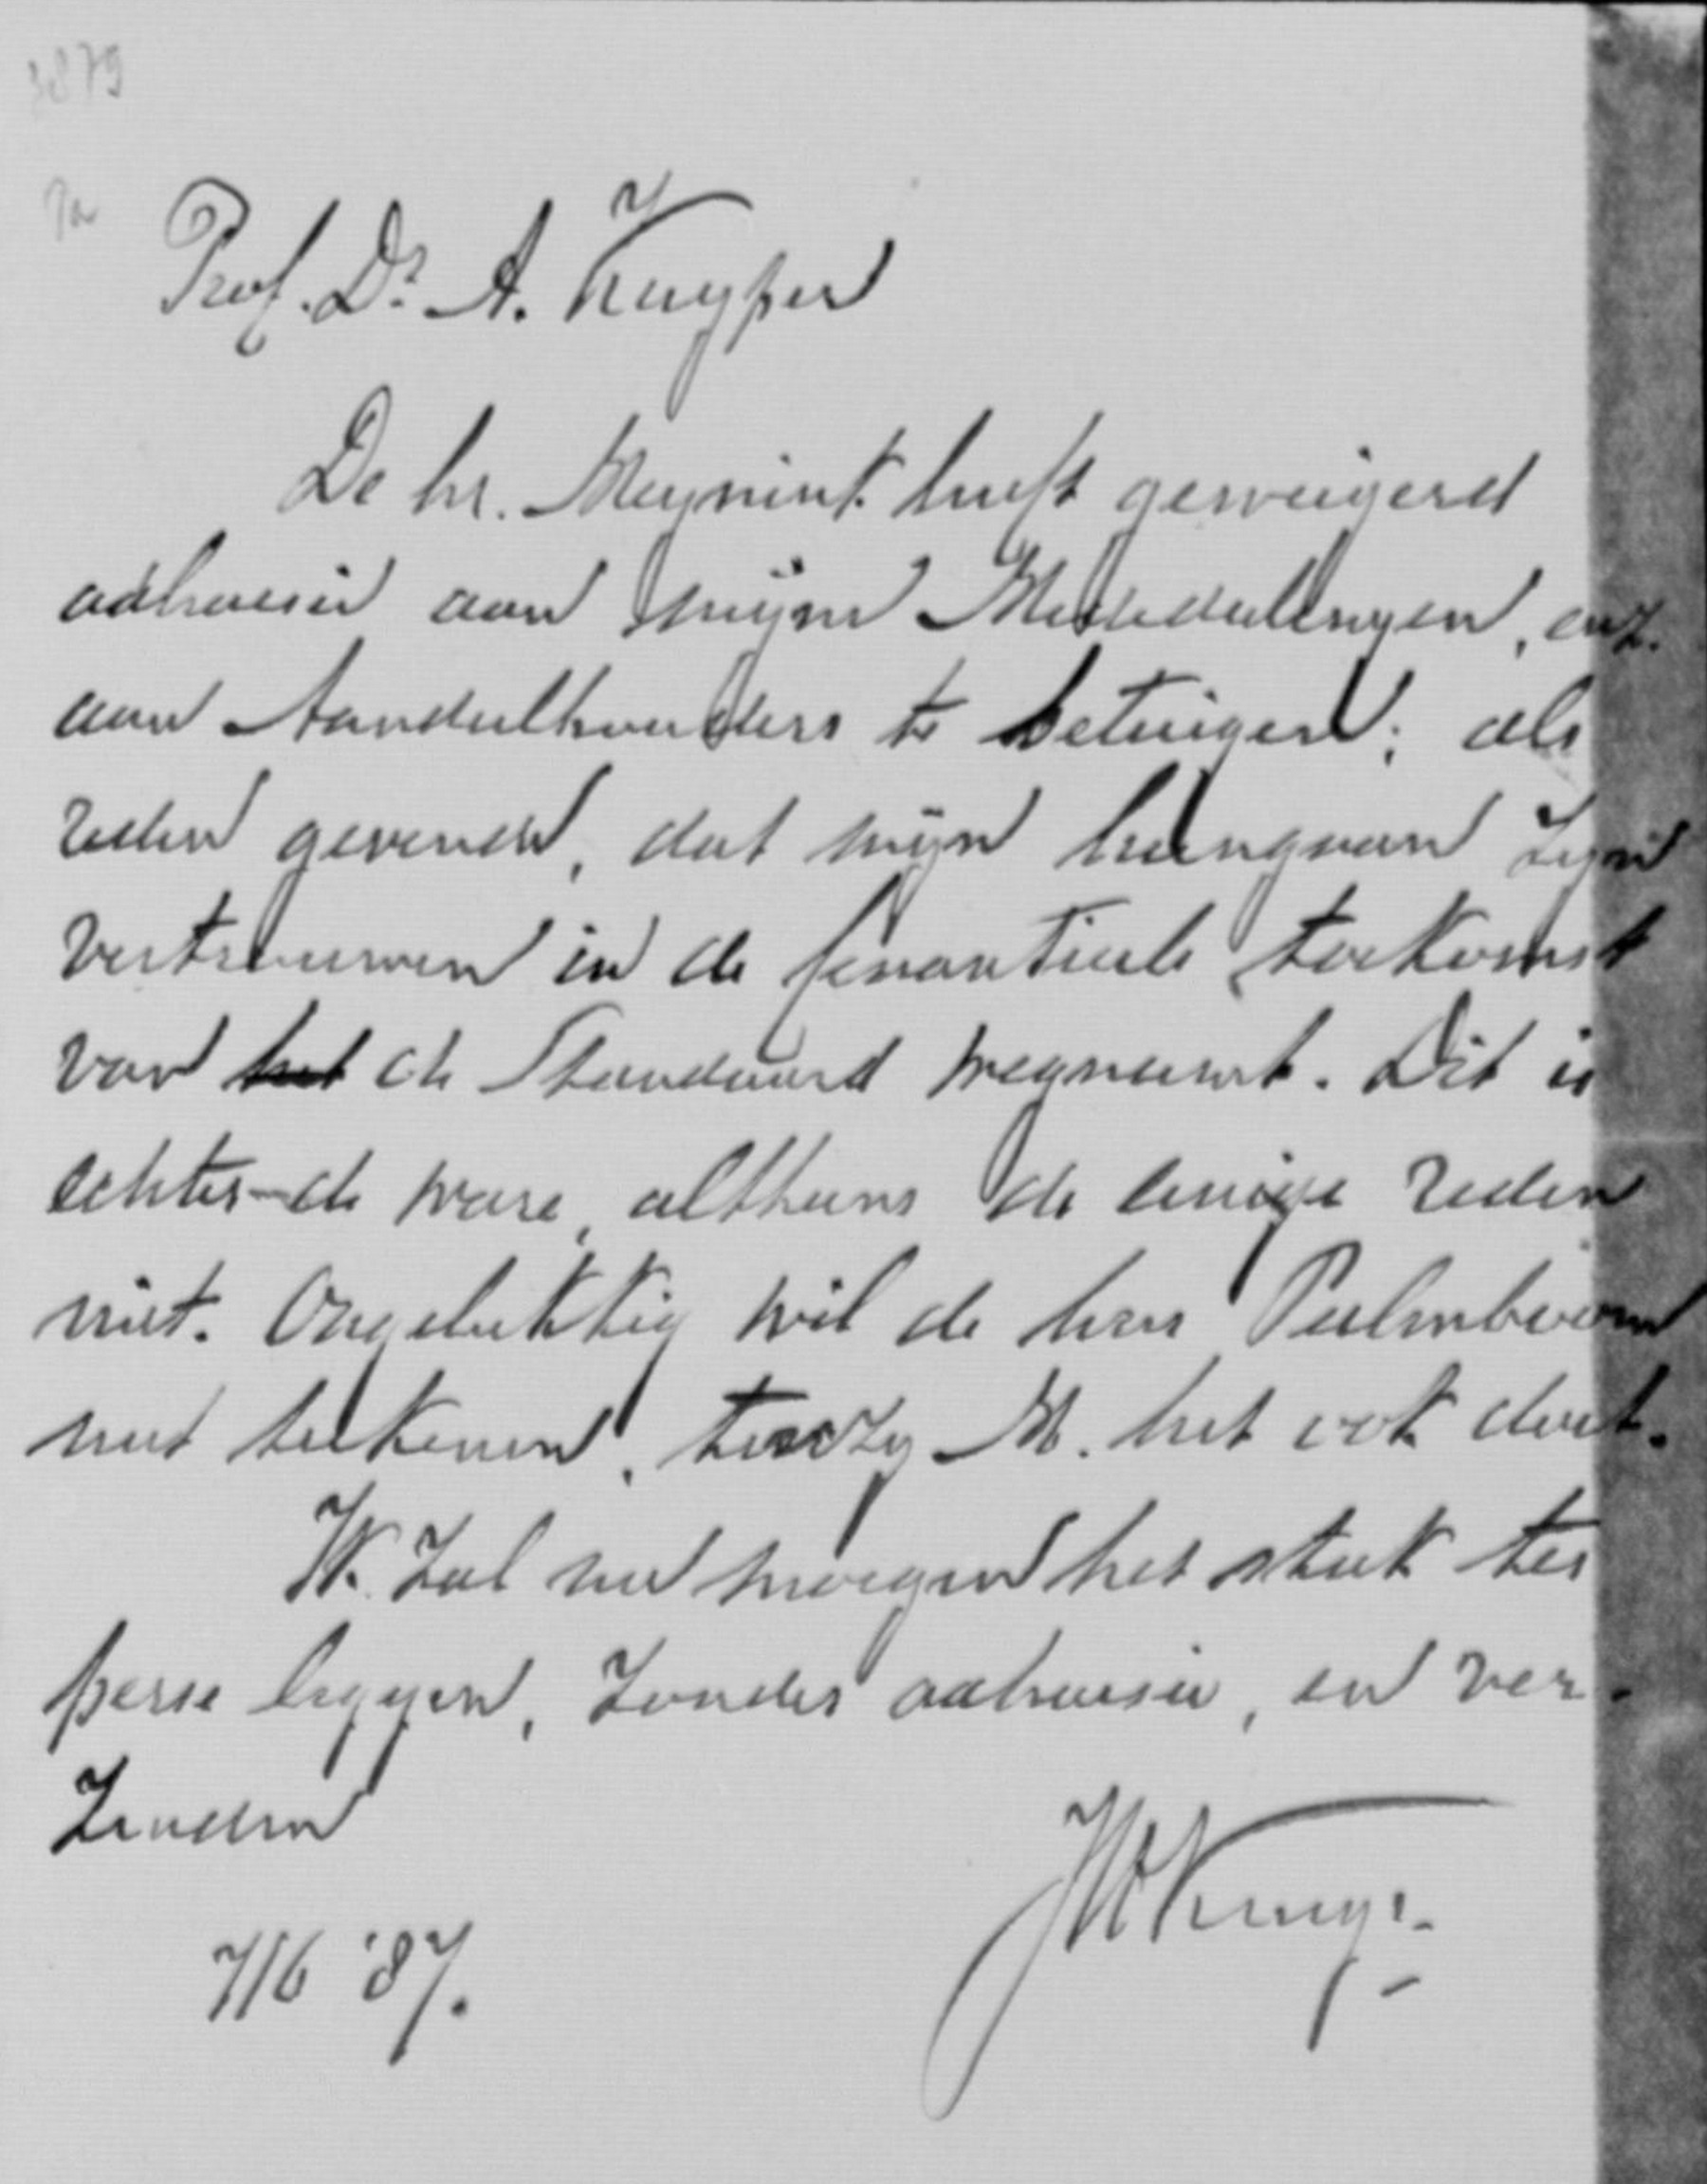 3879
Prof. Dr. A. Kuyper
De hr. Meynink heeft geweigerd
adhaesie aan mijne Mededeelingen, enz.
aan Aandeelhouders te betuigen; als
reden gevende, dat mijn heengaan zijn
vertrouwen in de finantieele toekomst
van het de Standaard wegneemt. Dit is
echter de ware, althans de eenige reden
niet. Ongelukkig wil de heer Palmboom
niet teekenen, tenzij M. het ook doet.
Ik zal nu morgen het stuk ter
perse leggen, zonder adhaesie, en ver-
zenden
JHKruyt
7/6 '87.